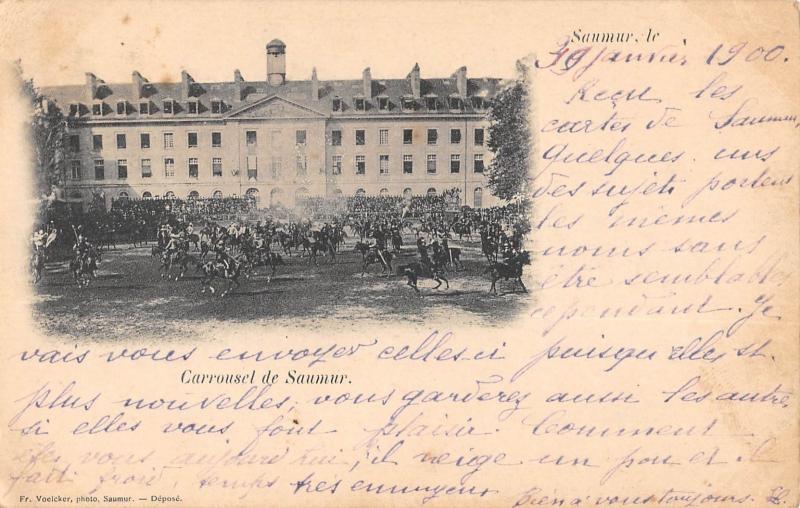 Saumur, le
30 Janvier 1900.
Reçu les
cartes de Saumur,
quelques uns
des sujets portent
les mêmes
noms sans
être semblables
cependant. Je
vais vous envoyer celles-ci puisqu'elles st.
Carrousel de Saumur.
plus nouvelles. vous garderez aussi les autres
si elles vous font plaisir. Comment
êtes vous aujourd'hui, il neige un peu et il
fait froid, temps très ennuyeux
Bien à vous toujours.
Fr. Voelcker, photo, Saumur. — Déposé.